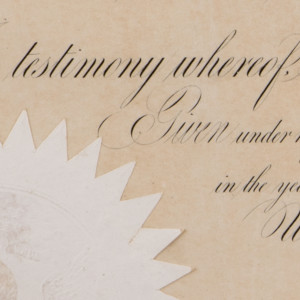 testimony whereof,
Given under
in the